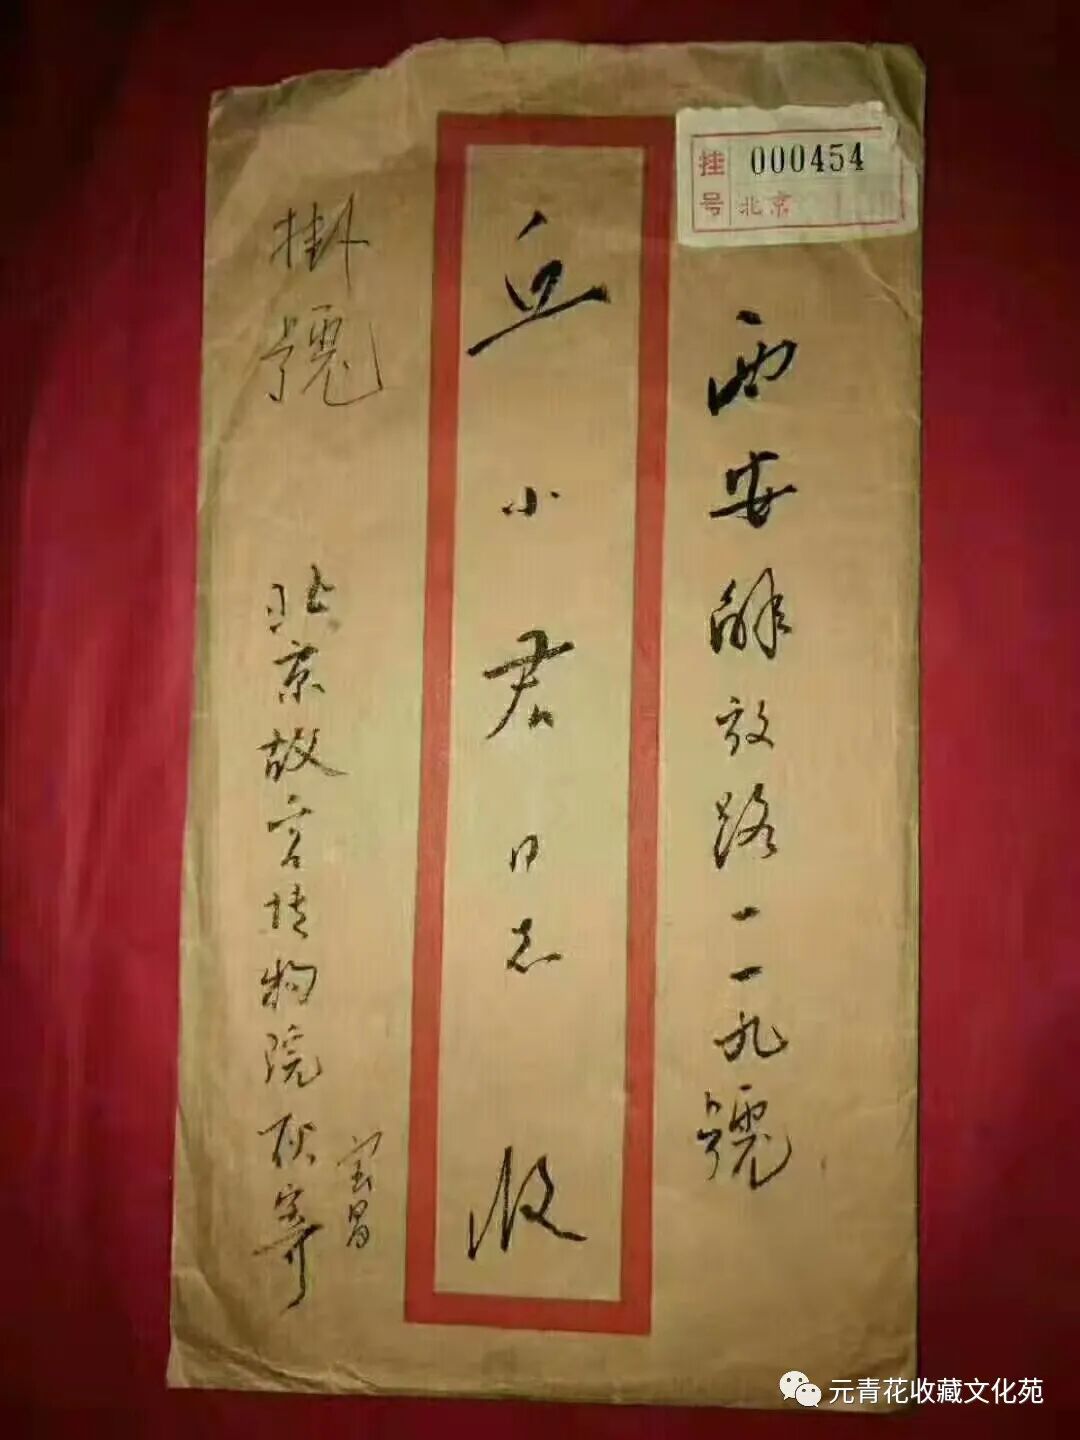 挂号 000454
北京
西安解放路一一九號
丘小君同志 收
掛號
北京故宫博物院耿寄
宝昌
元青花收藏文化苑